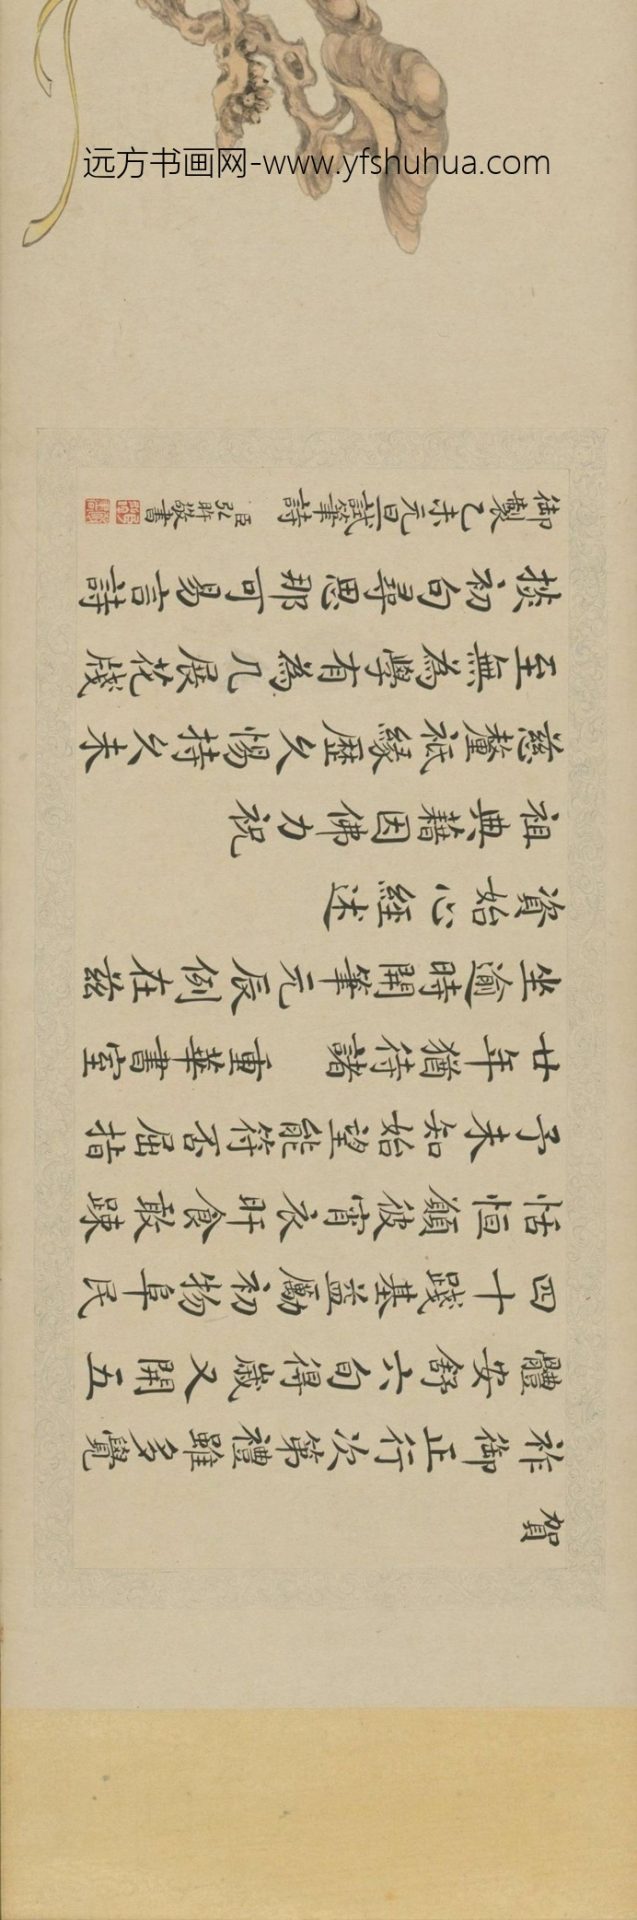 远方书画网-www.yfshuhua.com
賀
祚御正行次第禮雖多覺
體安舒六旬得歲又開五
四十踐基益勵初物阜民
恬恒願彼宵衣旰食敢踈
予未知始望能符否屈指
廿年猶待諸 重華書室
坐逾時開筆元辰例在茲
資始心經述
祖典藉因佛力祝
慈釐祇緣歷久惕持久未
至無為學有為几展花牋
掞初句尋思那可易言詩
御製乙未元旦試筆詩 臣弘旿敬書